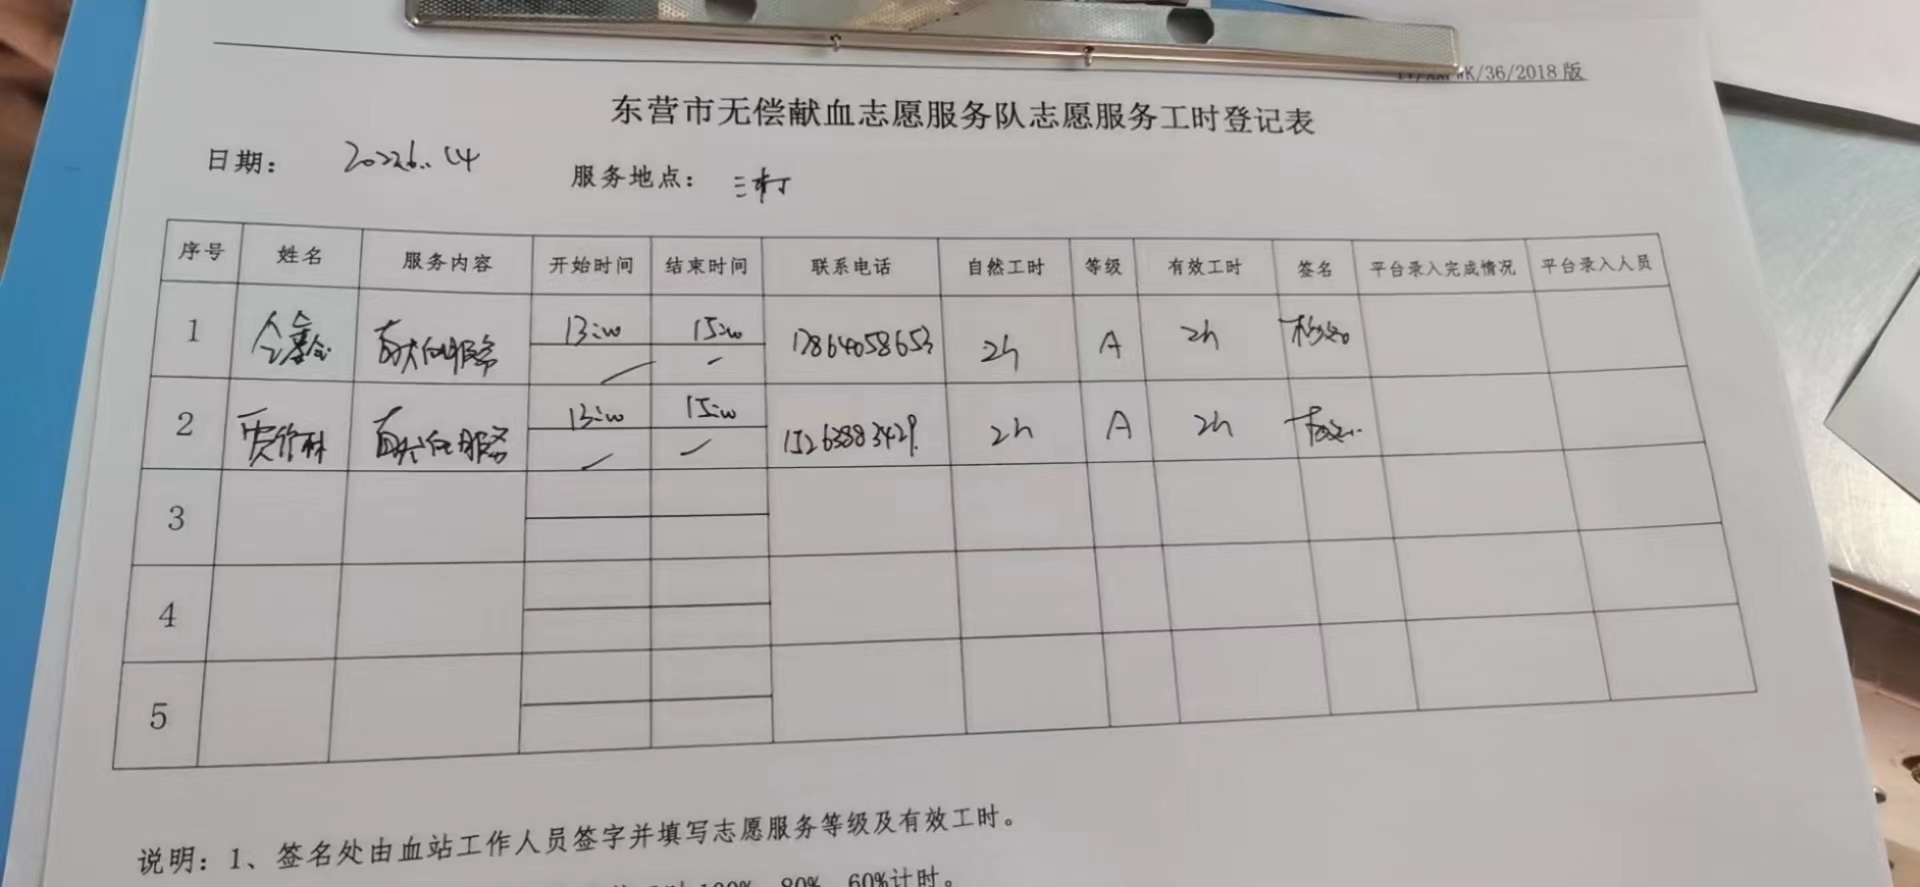 K/36/2018版
东营市无偿献血志愿服务队志愿服务工时登记表
日期： 2022.6.14 服务地点：
序号 姓名 服务内容 开始时间 结束时间 联系电话 自然工时 等级 有效工时 签名 平台录入完成情况 平台录入人员
1 服务 13:00 15:00 17864058653 2h A 2h
2 服务 13:00 15:00 15263883429 2h A 2h
3
4
5
说明：1、签名处由血站工作人员签字并填写志愿服务等级及有效工时。
100% 80% 60%计时。